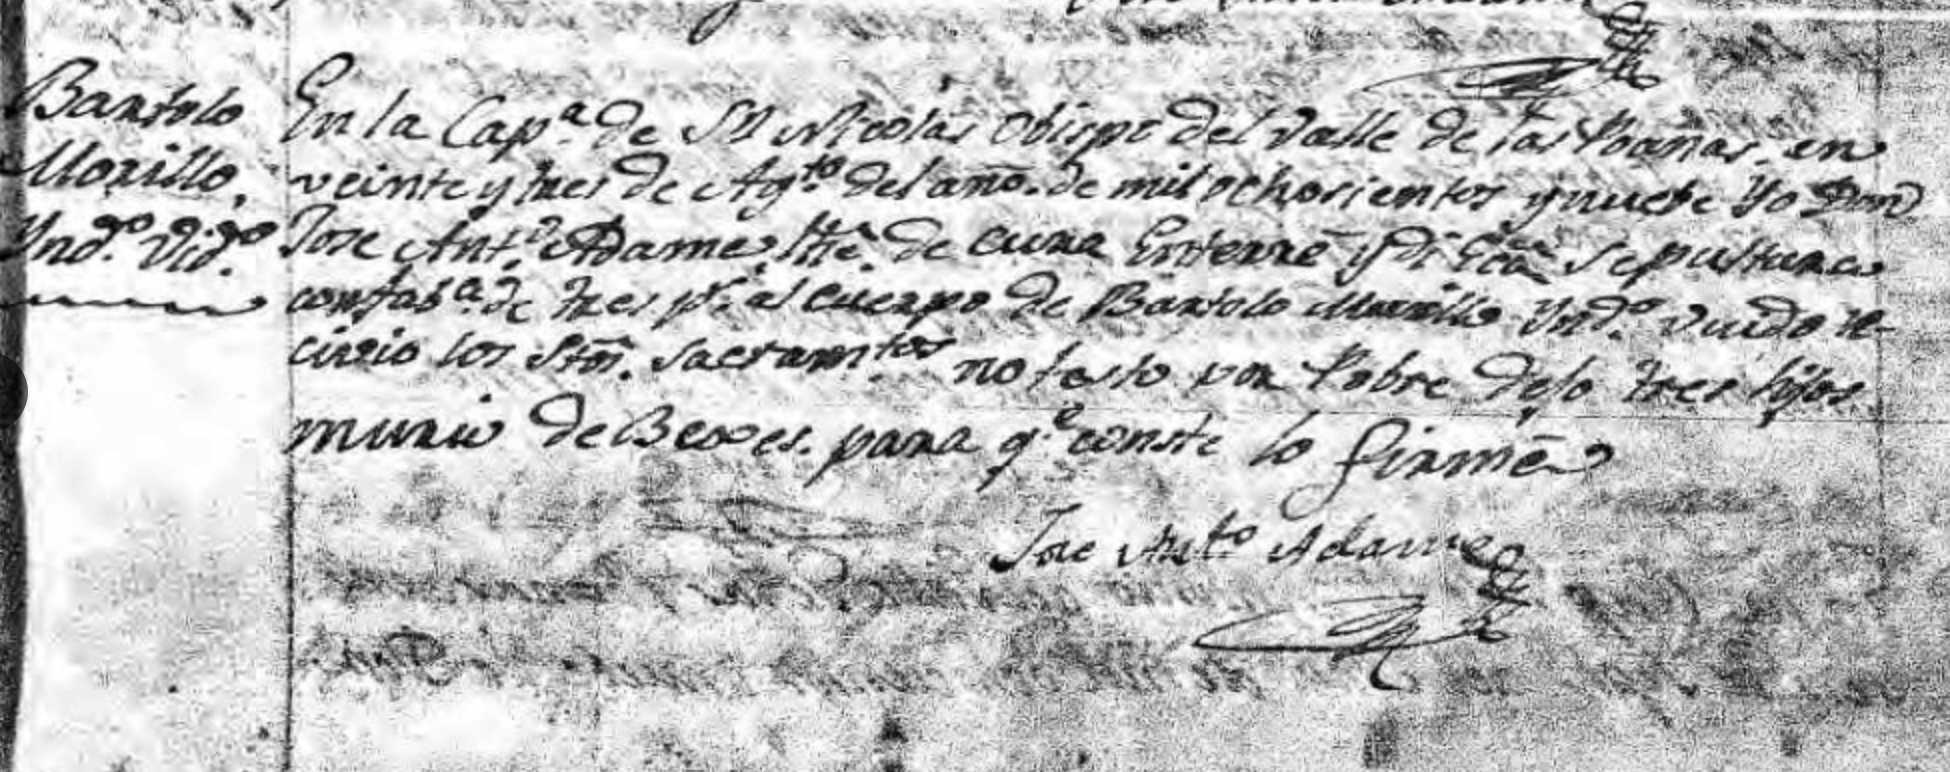 Bartolo
Morillo,
Yndº. Vidº.
En la Capª. de Sn Nicolas Obispo del Valle de las Poanas, en
veinte y tres de Agto. del año. de mil ochosientos y nuebe Yo Don
Jose Antº. Adame, tte. de cura Enterre y di Ecca Sepultura
con fabª. de tres ps. al cuerpo de Bartolo Morillo Yndº. viudo re-
civio los Stos. Sacramtos no testo por Pobre dejo tres hijos
murio de Beoes. para qe. conste lo firme
Jose Anto Adame